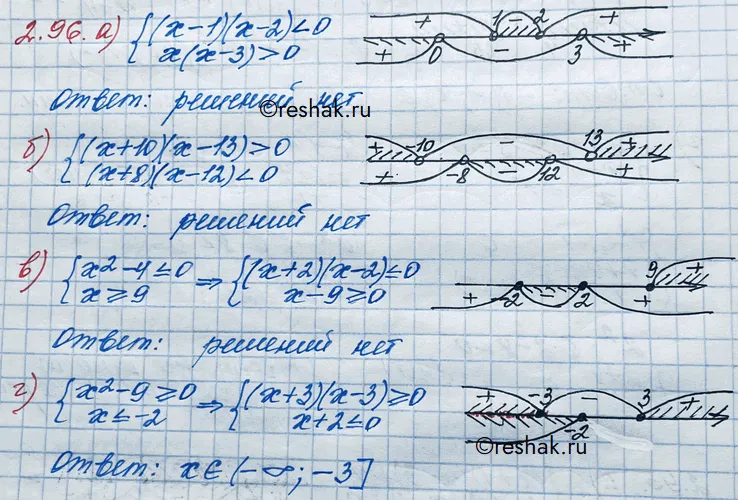 2.96. а) { (x-1)(x-2)<0
x(x-3)>0
+ 1 - 2 +
+ 0 - 3 +
Ответ: решений нет
©reshak.ru
б) { (x+10)(x-13)>0
(x+8)(x-12)<0
+ -10 - 13 +
+ -8 - 12 +
Ответ: решений нет
в) { x²-4≤0 ⇒ { (x+2)(x-2)≤0
x≥9 x-9≥0
9 +
+ -2 - 2 +
Ответ: решений нет
г) { x²-9≥0 ⇒ { (x+3)(x-3)≥0
x≤-2 x+2≤0
+ -3 - 3 +
-2
©reshak.ru
Ответ: x∈(-∞; -3]